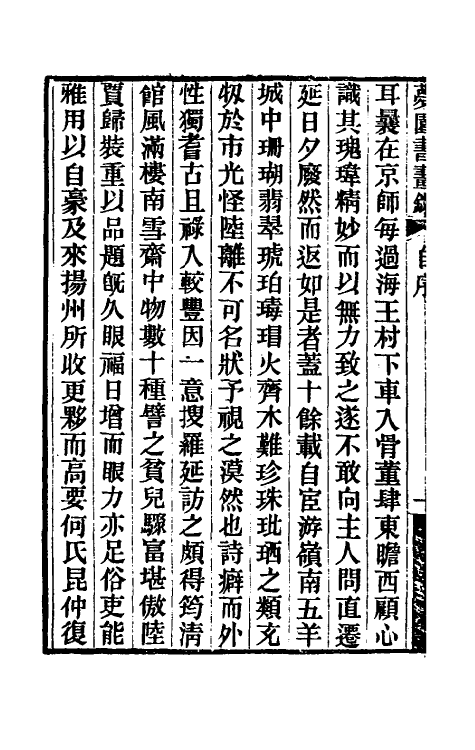 夢園書畫錄 自序 一
耳曩在京師每過海王村下車入骨董肆東瞻西顧心
識其瑰瑋精妙而以無力致之遂不敢向主人問直遷
延日夕廢然而返如是者蓋十餘載自宦游嶺南五羊
城中珊瑚翡翠琥珀瑇瑁火齊木難珍珠玭珒之類充
牣於市光怪陸離不可名狀予視之漠然也詩癖而外
性獨耆古且祿入較豐因一意搜羅延訪之頗得筠清
館風滿樓南雪齋中物數十種譬之貧兒驟富堪傲陸
賈歸裝重以品題旣久眼福日增而眼力亦足俗吏能
雅用以自豪及來揚州所收更夥而高要何氏昆仲復